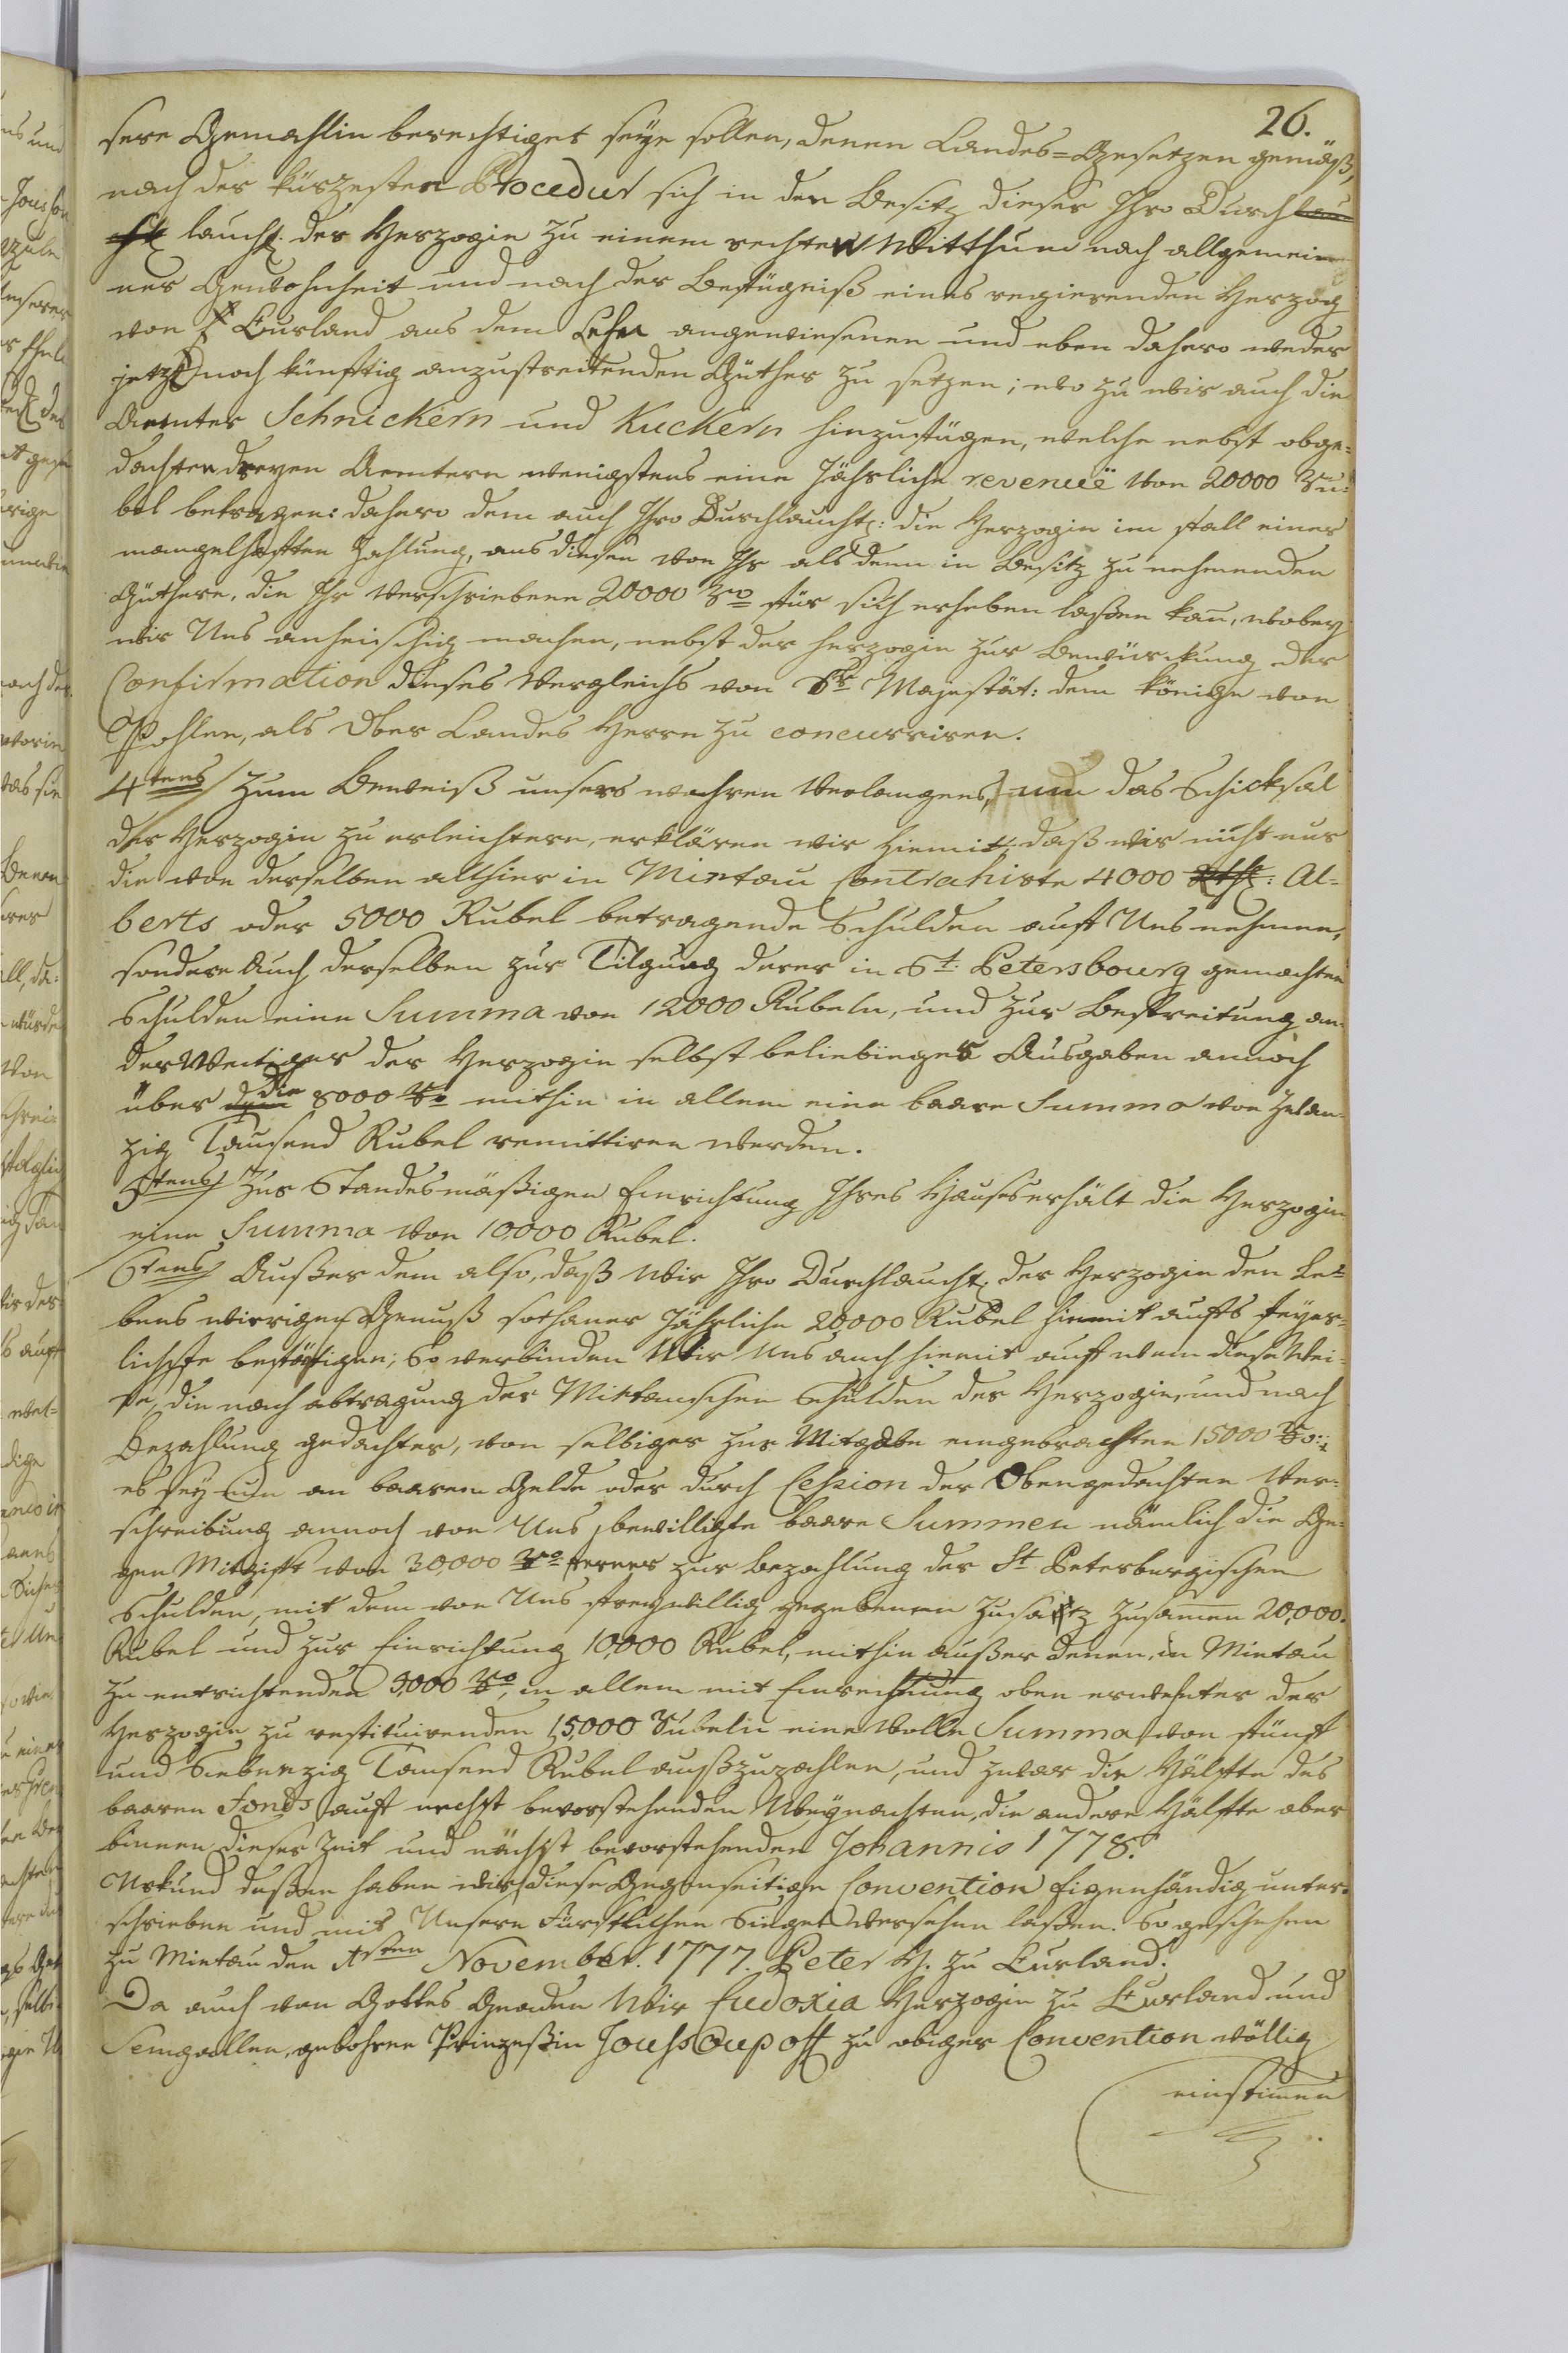 26.
sere Gemahlin berechtiget seyn sollen, denen Landes-Gesetzen gemäß,
nach der kürzesten Procedur sich in den Besitz dieser Ihro Durch
laucht. der Herzogin zu einem rechten Witthum nach allgemei
ner Gewohnheit und nach der Befügniß eines regierenden Herzog
von Curland aus dem Lehn angewiesenen und eben dahero weder
jetzt noch künftig anzustreitenden Güther zu setzen; wo zu wir auch die
Aemter Schnickern und Kuckern hinzufügen, welche nebst obge-
dachten dreyen Aemtern wenigstens eine Jährliche revenuë von 20000 Ru-
bel betragen: dahero dem auch Ihro Durchlaucht: die Herzogin im fall einer
mangelhafften Zahlung, aus diesen von Ihr als denn in Besitz zu nehmenden
Güthern, die Ihr verschriebene 20000 Ro für sich erheben laßen kan, wobey
wir Uns anheischig machen, nebst der Herzogin zur Bewürckung der
Confirmation dieses Vergleichs von Sr Majestät: dem Könige von
Pohlen, als Ober Landes Herrn zu concurriren.
4tens Zum Beweiß unsers wahren Verlangens, um das Schicksal
der Herzogin zu erleichtern, erklären wir hiemit, daß wir nicht nur
die von derselben allhier in Mietau Contrahirte 4000 Rth: Al-
berts oder 5000 Rubel betragende Schulden auf Uns nehmen,
sondern auch derselben zur Tilgung derer in St. Petersbourg gemachten
Schulden eine Summa von 12000 Rubeln, und zur Bestreitung an-
derweitiger der Herzogin selbst beliebiger Ausgaben annoch
über die 8000 Ro mithin in allem eine baare Summa von Zwan-
zig Tausend Rubel remittiren werden.
5tens Zur Standesmäßigen Einrichtung Ihres Hauses erhält die Herzogin
eine Summa von 10,000 Rubel.
6tens Außer dem also, daß Wir Ihro Durchlaucht. der Herzogin den Le-
bens wierigen Genuß sothaner Jährliche 20,000 Rubel hiemit aufs feyer-
lichste bestättigen; So verbinden Wir Uns auch hiemit auf diese Wei-
se, die nach abtragung der Mietauschen Schulden der Herzogin, und nach
Bezahlung gedachter, von selbiger zur Mitgabe eingebrachten 15000 Ro.
es sey nun an baarem Gelde oder durch Cession der Obengedachten Ver-
schreibung annoch von Uns bewilligte baare Summen nämlich die Ge-
gen Mitgift von 30,000 Ro ferner zur Bezahlung der St Petersburgischen
Schulden, mit dem von Uns freywillig gegebenen Zusatz zusammen 20,000.
Rubel und zur Einrichtung 10,000 Rubel, mithin außer denen, in Mietau
zu entrichtenden 5,000 Ro, in allem mit Einrechnung oben erwehnter der
Herzogin zu restituirenden 15,000 Rubeln eine Volle Summa von fünf
und Siebenzig Tausend Rubel außzuzahlen, und zwar die Hälfte des
baaren Fonds auf nechst bevorstehenden Weynachten, die andere Hälffte aber
binnen dieser Zeit und nächst bevorstehenden Johannis 1778.
Urkund deßen haben wir diese Gegenseitige Convention Eigenhändig unter-
schrieben und mit Unsern Fürstlichen Siegel versehen laßen. So geschehen
zu Mietau den sten November. 1777. Peter H. zu Curland.
Da auch von Gottes Gnaden Wir Eudoxia Herzogin zu Curland und
Semgallen, gebohrne Prinzeßin Joussoupoff zu obiger Convention völlig
einstimmen